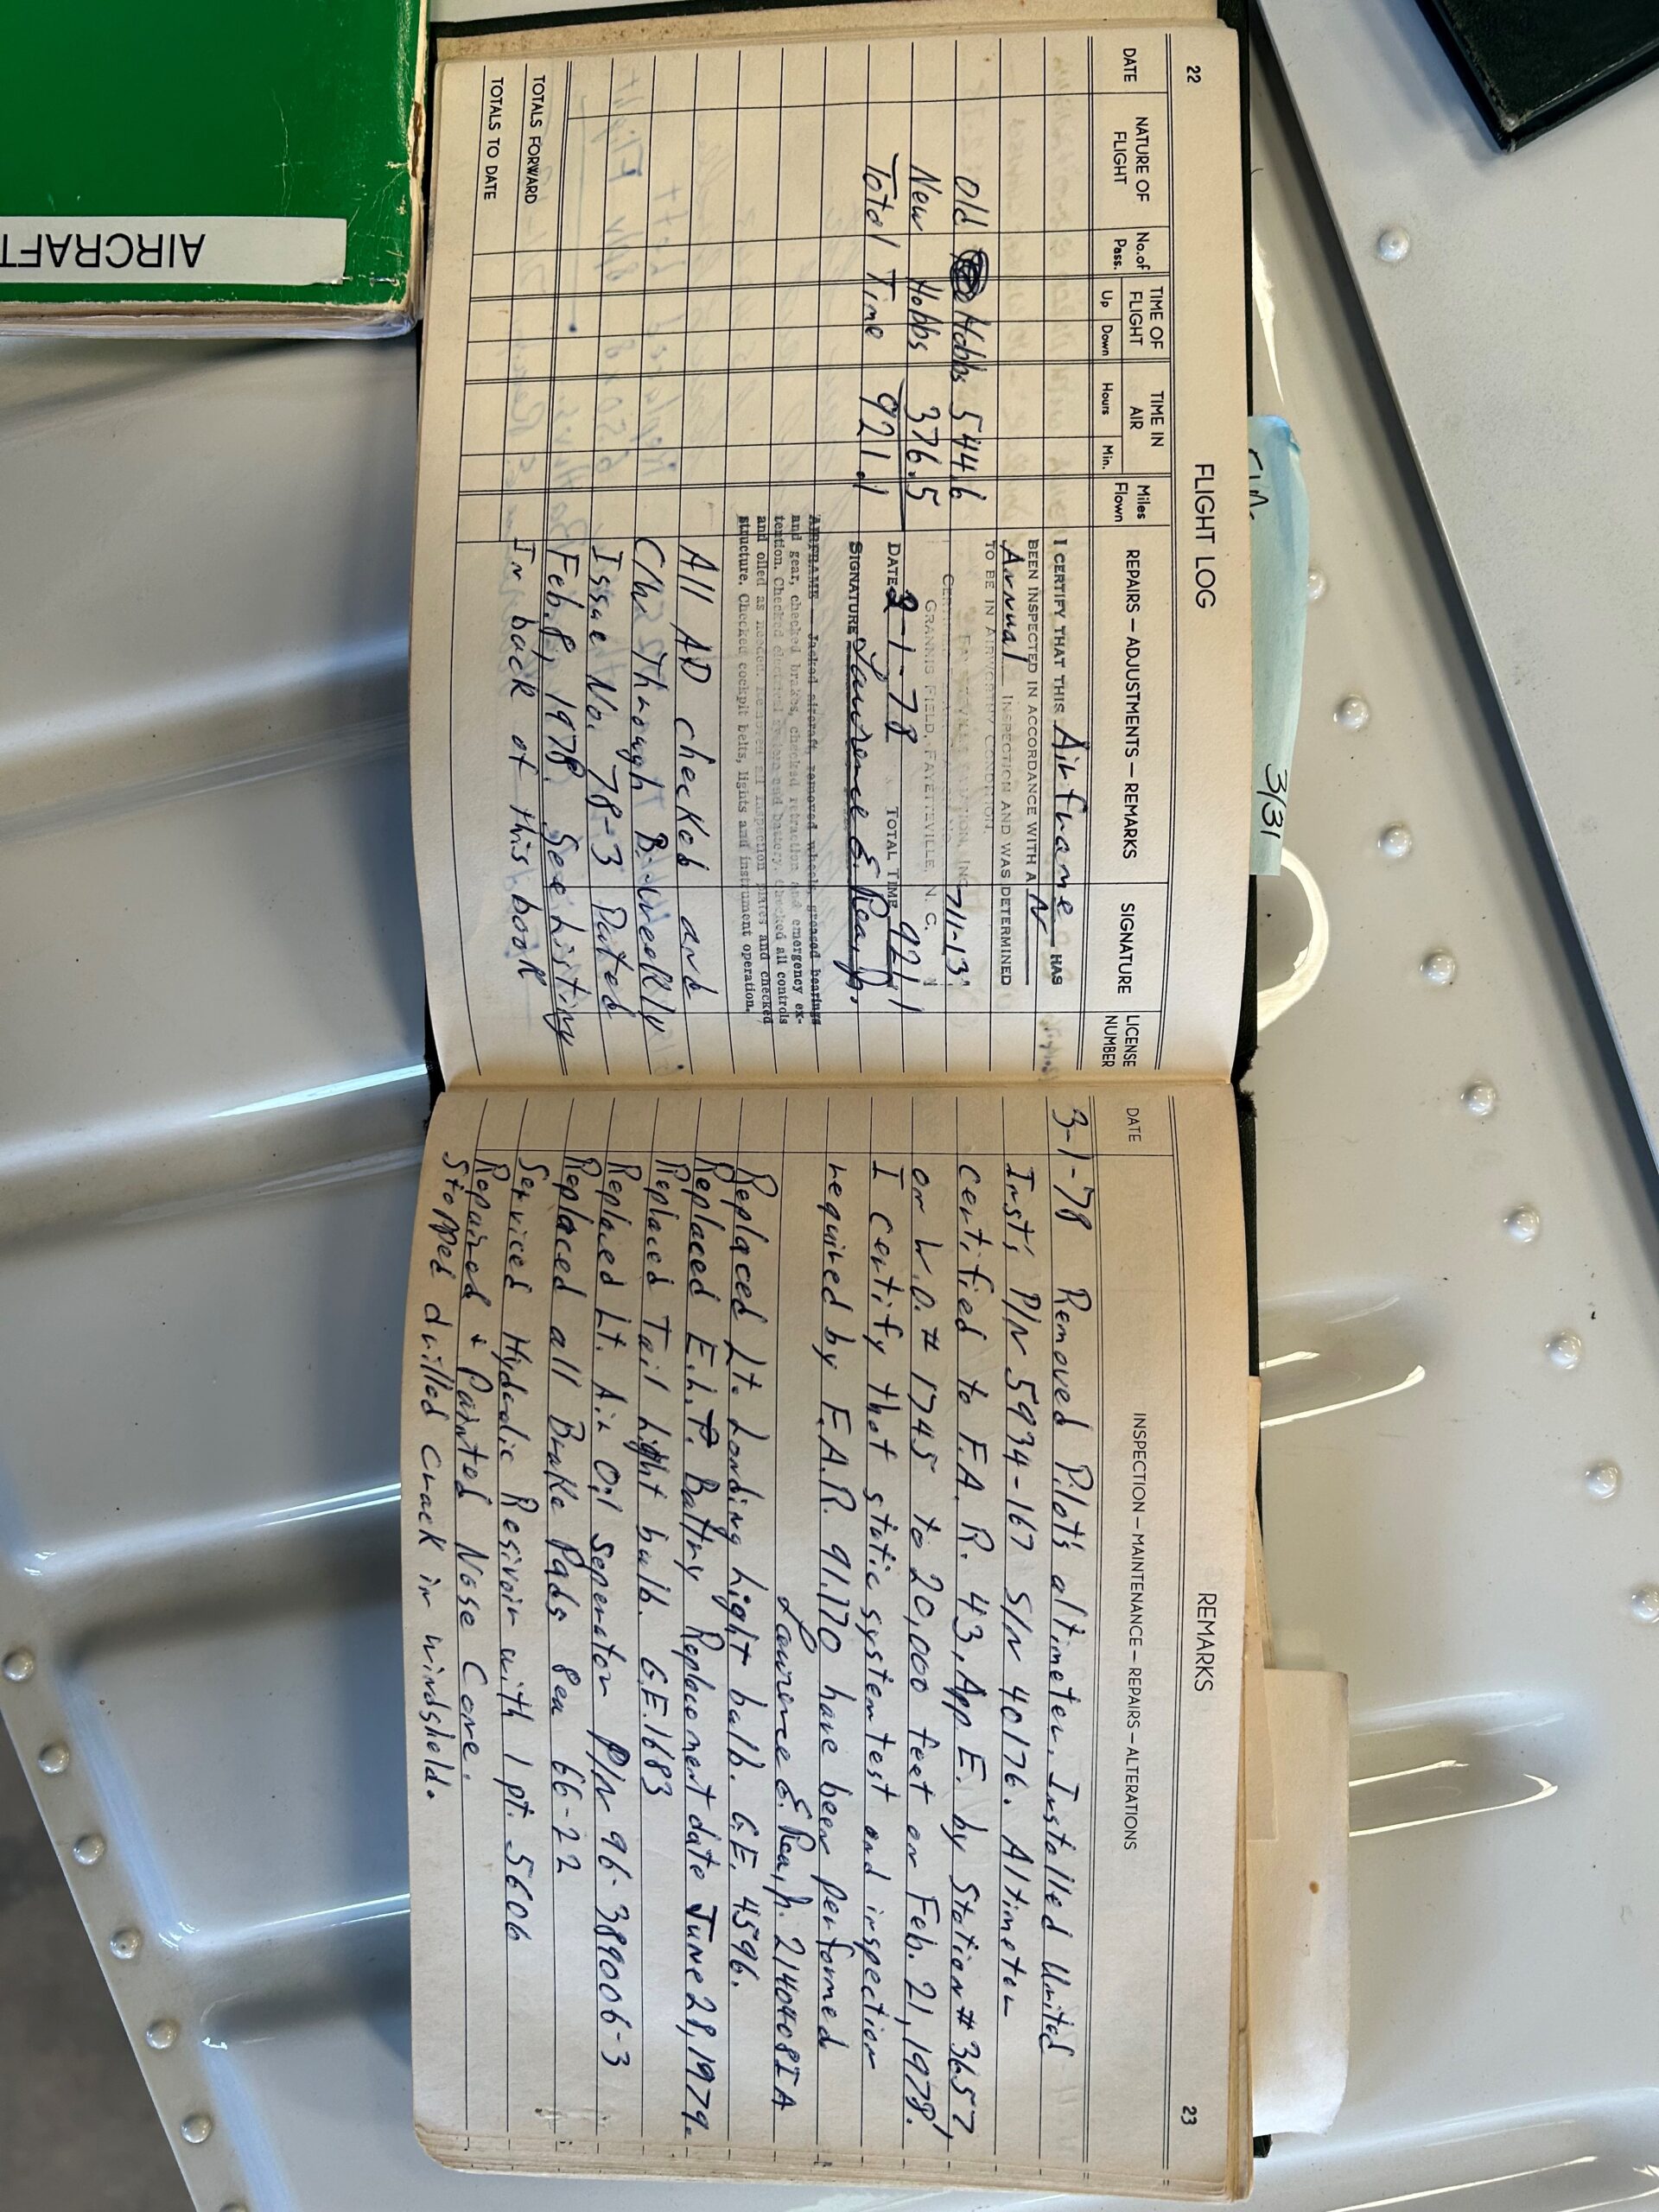 22
FLIGHT LOG
DATE
NATURE OF FLIGHT
No. of Pass.
TIME OF FLIGHT
Up Down
TIME IN AIR
Hours Min.
Miles Flown
REPAIRS — ADJUSTMENTS — REMARKS
SIGNATURE
LICENSE NUMBER
Old Hobbs 544.6
New Hobbs 376.5
Total Time 921.1
I CERTIFY THAT THIS Airframe HAS
BEEN INSPECTED IN ACCORDANCE WITH A N
Annual INSPECTION AND WAS DETERMINED
TO BE IN AIRWORTHY CONDITION.
711-13
GRANNIS FIELD, FAYETTEVILLE, N. C.
DATE 3-1-78 TOTAL TIME 921.1
SIGNATURE Lawrence E. Rea, Jr.
AIRFRAME — Jacked aircraft, removed wheels, greased bearings
and gear, checked brakes, checked retraction and emergency ex-
tention. Checked electrical system and battery. Checked all controls
and oiled as needed. Removed all inspection plates and checked
structure. Checked cockpit belts, lights and instrument operation.
All AD checked and
C/W Through Bi-weekly
Issue No. 78-3 Dated
Feb. 8, 1978. See Listing
In back of this book
TOTALS FORWARD
TOTALS TO DATE
REMARKS
23
DATE
INSPECTION — MAINTENANCE — REPAIRS — ALTERATIONS
3-1-78 Removed Pilot's altimeter. Installed United
Inst; P/N 5934-167 S/N 40176. Altimeter
certified to F.A.R. 43, App E. by Station # 3657,
on W.O. # 1745 to 20,000 feet on Feb. 21, 1978.
I certify that static system test and inspection
required by F.A.R. 91.170 have been performed
Lawrence E. Rea, Jr. 2140408IA
Replaced Lt. Landing Light bulb. G.E. 4596.
Replaced E.L.T. Battry Replacement date June 28, 1979.
Replaced Tail Light bulb. G.E. 1683
Replaced Lt. Air Oil Seperator P/N 96-389006-3
Replaced all Brake Pads 8ea 66-22
Serviced Hydralic Resivoir with 1 pt. 5606
Repaired & Painted Nose Cone.
Stopped drilled crack in windshield.
3/31
AIRCRAFT